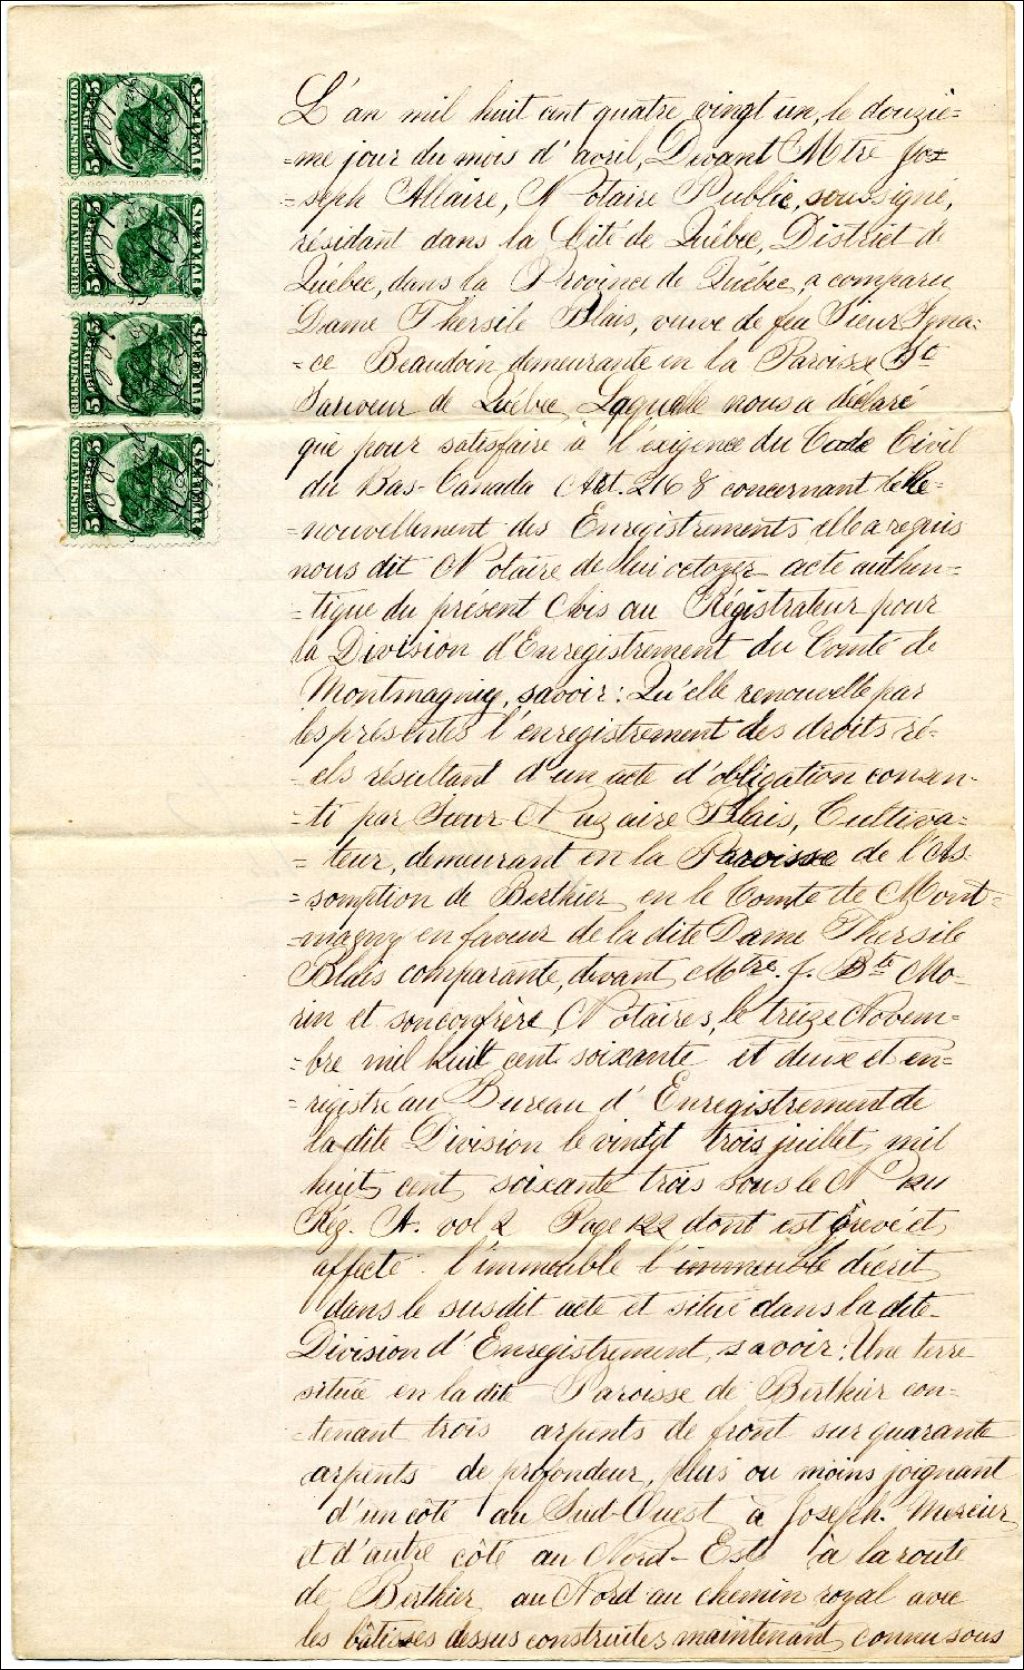 REGISTRATION
SIX DEALI
5
REGISTRATION
5
REGISTRATION
5
REGISTRATION
5
L'an mil huit cent quatre vingt un, le douziè=
=me jour du mois d'avril, Devant Mtre Jo=
=seph Allaire, Notaire Public, soussigné,
résidant dans la Cité de Québec, District de
Québec, dans la Province de Québec, a comparu
Dame Thersile Blais, veuve de feu Sieur Igna=
=ce Beaudoin demeurante en la Paroisse St
Sauveur de Québec, Laquelle nous a déclaré
que pour satisfaire à l'exigence du Code Civil
du Bas-Canada (Art. 2168 concernant le Re=
=nouvellement des Enregistrements elle a requis
nous dit Notaire de lui octoyer acte authen=
=tique du présent Avis au Régistrateur pour
la Division d'Enregistrement du Comté de
Montmagny, savoir: Qu'elle renouvelle par
les présentes l'enregistrement des droits ré=
els résultant d'un acte d'obligation consen=
=ti par Sieur Nazaire Blais, Cultiva=
=teur, demeurant en la Paroisse de l'As
=somption de Berthier en le Comté de Mont=
=magny en faveur de la dite Dame Thersile
Blais comparante, devant Mtre. J. Bte Mo-
rin et son confrère, Notaires, le treize Novem=
=bre mil huit cent soixante et deux et en=
=régistré au Bureau d'Enregistrement de
la dite Division le vingt trois juillet mil
huit cent soixante trois sous le No
Rég. A. vol 2 Page 122 dont est grevé et
affecté l'immeuble l'immeuble décrit
dans le susdit acte et situé dans la dite
Division d'Enregistrement, savoir: Une terre
située en la dite Paroisse de Berthier con=
=tenant trois arpents de front sur quarante
arpents de profondeur, plus ou moins joignant
d'un côté au Sud-Ouest à Joseph Mercier
et d'autre côté au Nord-Est à la route
de Berthier au Nord au chemin royal avec
les bâtisses dessus construites maintenant connu sous